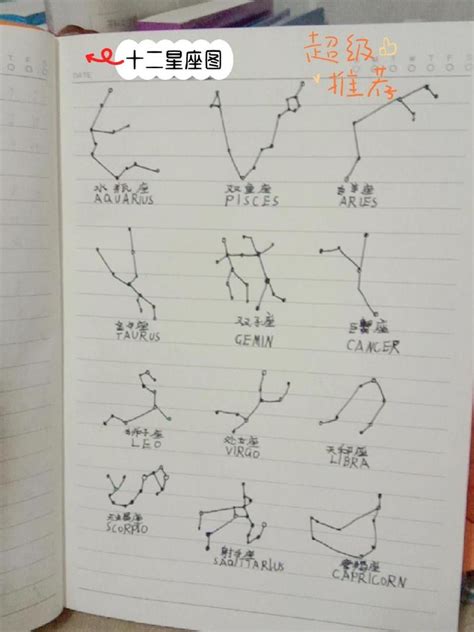 十二星座图
超级
推荐
DATE
水瓶座
AQUARIUS
双鱼座
PISCES
白羊座
ARIES
金牛座
TAURUS
双子座
GEMIN
巨蟹座
CANCER
狮子座
LEO
处女座
VIRGO
天秤座
LIBRA
SCORPIO
射手座
SAGITTARIUS
CAPRICORN